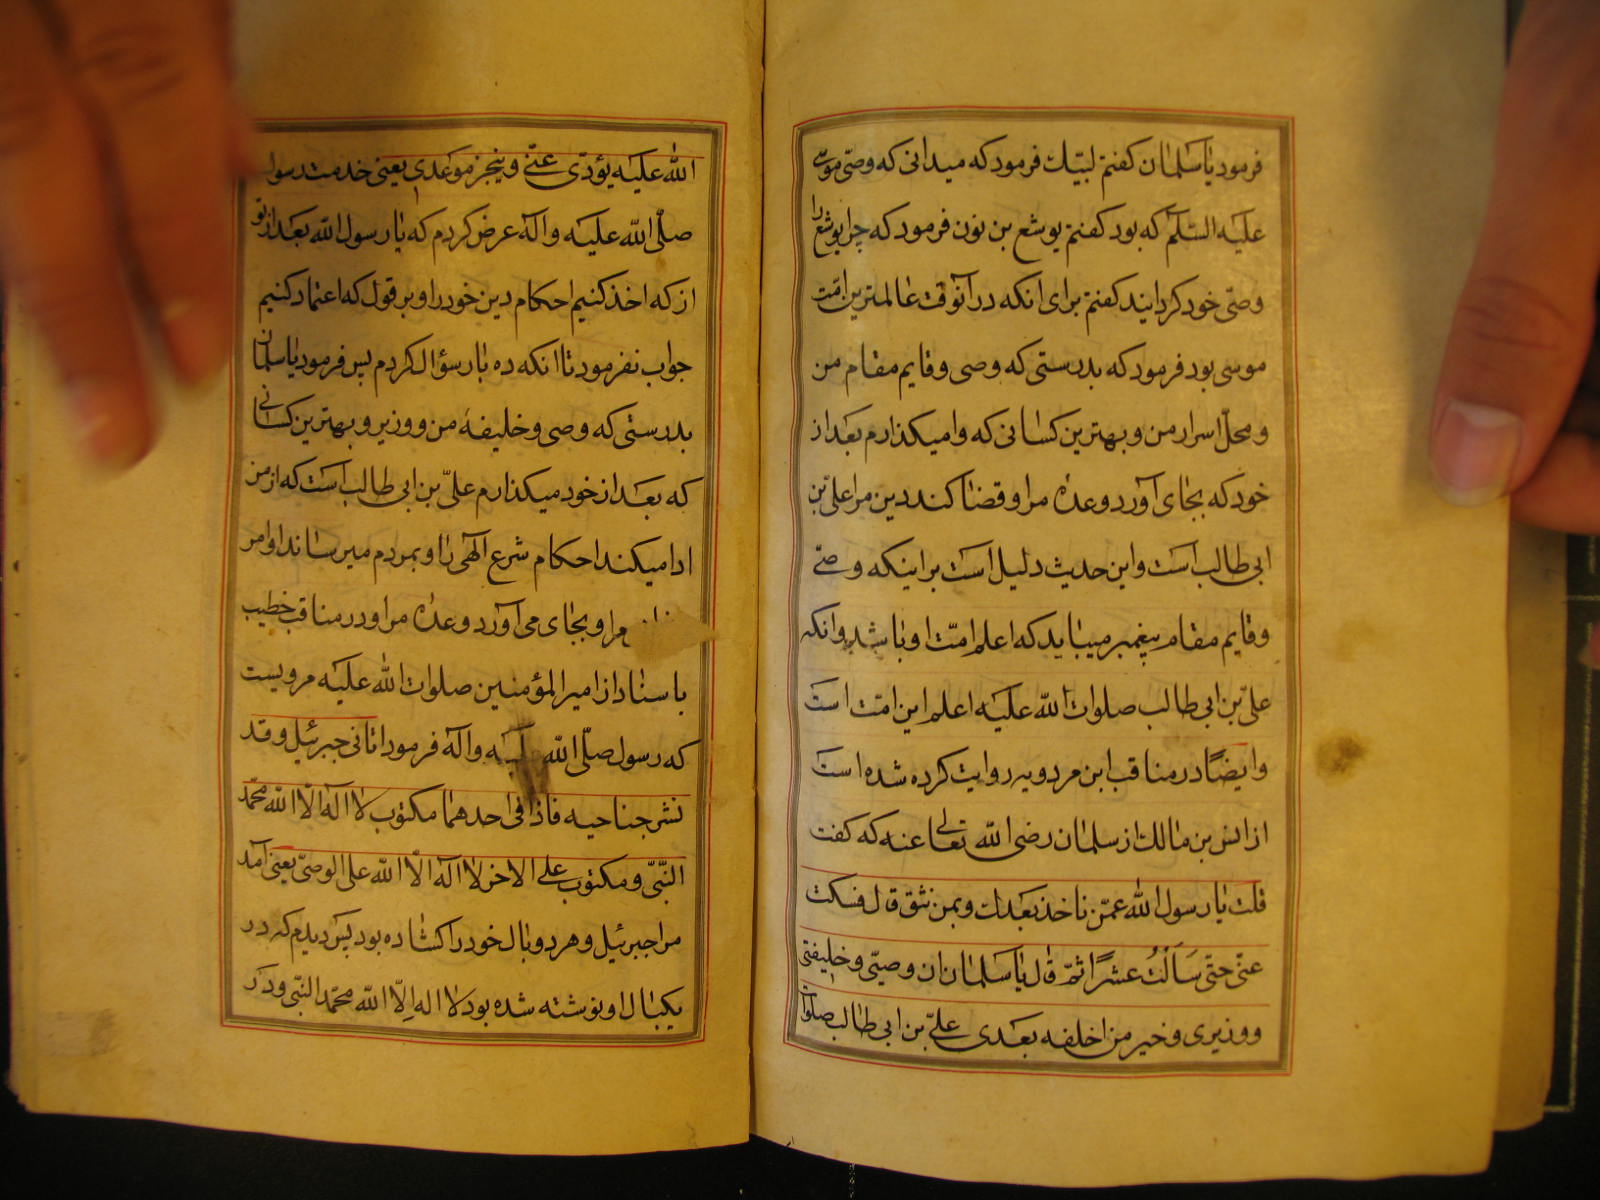 فرمود یا سلمان کفتم لبیّك فرمود که میدانی که وصّی موسی
علیه السّلم که بود کفتم یوشع بن نون فرمود که چرا یوشع را
وصّی خود کردانید کفتم برای انکه در آنوقت عالمترین امّت
موسی بود فرمود که بدرستی که وصی و قایم مقام من
و محلّ اسرار من و بهترین کسانی که وامیکذارم بعد از
خود که بجای آورد وعدۀ مرا و قضا کند دین مرا علی بن
ابی طالب است و این حدیث دلیل است بر اینکه وصّی
و قایم مقام پیغمبر میباید که اعلم امّت او باشد و انکه
علیّ بن ابی طالب صلوات الله علیه اعلم این امّت است
و ایضًا در مناقب ابن مردویه روایت کرده شده است
از انس بن مالك از سلمان رضی الله تعالی عنه که کفت
قلت یا رسول الله عمّن ناخذ بعدك و بمن نثق قال فسکت
عنّی حتّی سَاَلْتُ عشرًا ثمّ قال یا سلمان ان وصیّی و خلیفتی
و وزیری و خیر من اخلفه بعدی علیّ بن ابی طالب صلوات
الله علیه یؤدّی عنّی و ینجز موعدی یعنی خدمت رسول
صلّی الله علیه و آله عرض کردم که یا رسول الله بعد از تو
از که اخذ کنیم احکام دین خود را و بر قول که اعتماد کنیم
جواب نفرمود تا انکه ده بار سؤال کردم پس فرمود یا سلمان
بدرستی که وصی و خلیفۀ من و وزیر و بهترین کسانی
که بعد از خود میکذارم علیّ بن ابی طالب است که از من
ادا میکند احکام شرع الهی را و بمردم میرساند اوامر
مرا و بجای می آورد وعدۀ مرا و در مناقب خطیب
باسناد از امیر المؤمنین صلوات الله علیه مرویست
که رسول صلّی الله علیه و آله فرمود اتانی جبرئیل و قد
نشر جناحیه فاذا فی احدهما مکتوب لا اله الّا الله محمّد
النّبیّ و مکتوب علی الاخر لا اله الّا الله علی الوصیّ یعنی آمد
مرا جبرئیل و هر دو بال خود را کشاده بود پس دیدم که در
یکبال او نوشته شده بود لا اله الّا الله محمّد النّبی و در